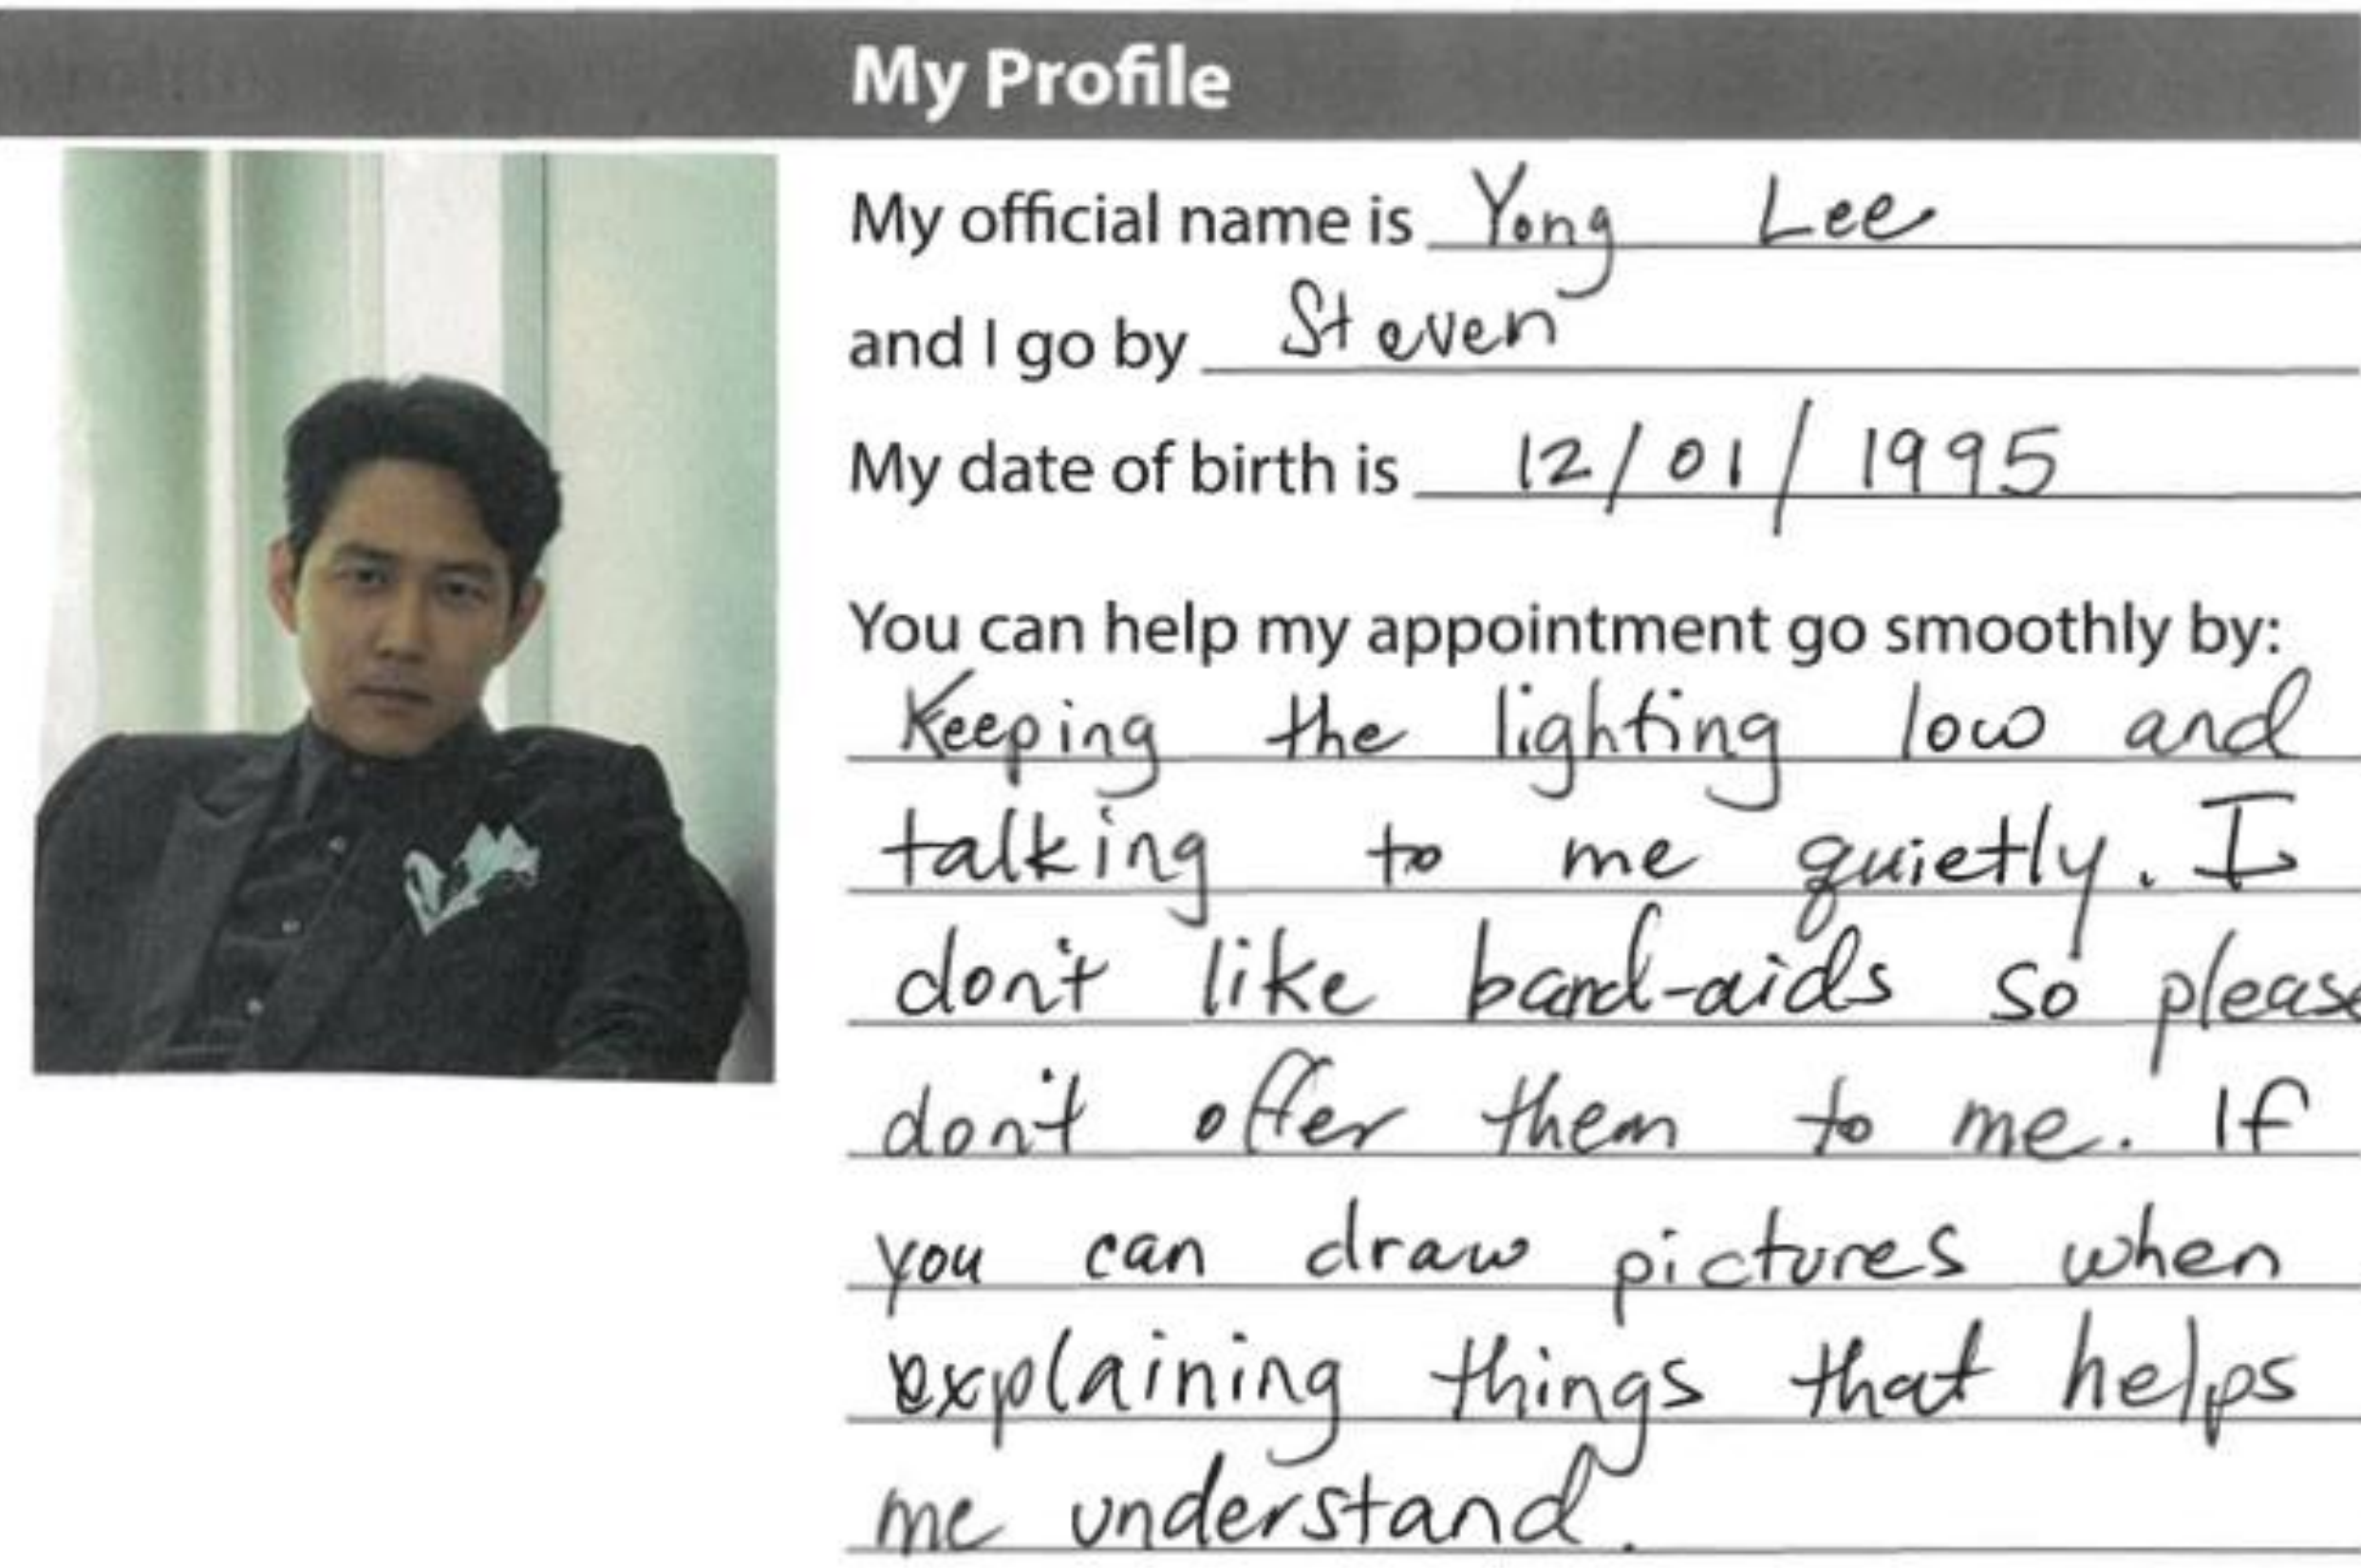 My Profile
My official name is Yong Lee
and I go by Steven
My date of birth is 12/01/1995
You can help my appointment go smoothly by:
Keeping the lighting low and
talking to me quietly. I
don't like band-aids so please
don't offer them to me. If
you can draw pictures when
explaining things that helps
me understand.